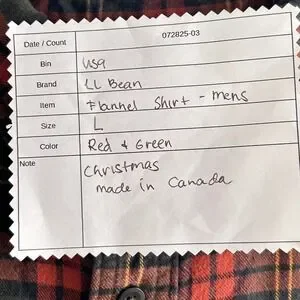 Date / Count 072825-03
Bin usa
Brand LL Bean
Item Flannel Shirt - mens
Size L
Color Red & Green
Note Christmas
made in Canada